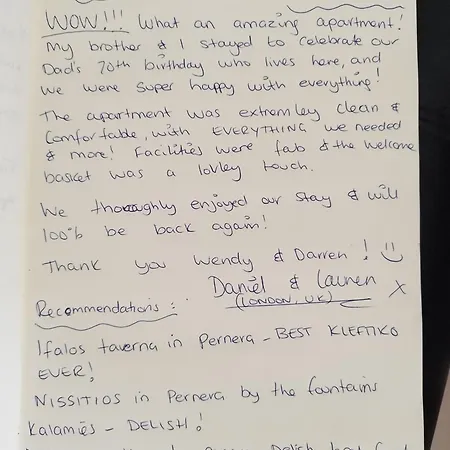 WOW!!! What an amazing apartment!
My brother & I stayed to celebrate our
Dad's 70th birthday who lives here, and
we were super happy with everything!
The apartment was extremley clean &
Comfortable, with EVERYTHING we needed
& more! Facilities were fab & the welcome
basket was a lovley touch.
We thoroughly enjoyed our stay & will
100% be back again!
Thank you Wendy & Darren! :)
Daniel & Lauren
(LONDON, UK) X
Recommendations:
Ifalos taverna in Pernera - BEST KLEFTIKO
EVER!
NISSITIOS in Pernera by the fountains
Kalamies - DELISH!